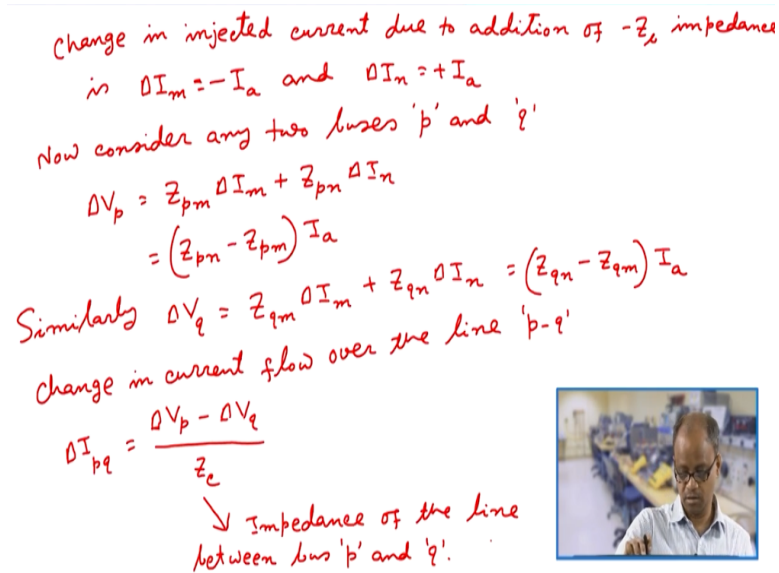 Change in injected current due to addition of -Z_b impedance
is ΔI_m = -I_a and ΔI_n = +I_a
Now consider any two buses 'p' and 'q'
ΔV_p = Z_pm ΔI_m + Z_pn ΔI_n
= (Z_pn - Z_pm) I_a
Similarly ΔV_q = Z_qm ΔI_m + Z_qn ΔI_n = (Z_qn - Z_qm) I_a
Change in current flow over the line 'p-q'
ΔI_pq = (ΔV_p - ΔV_q) / Z_c
↘ Impedance of the line
between bus 'p' and 'q'.